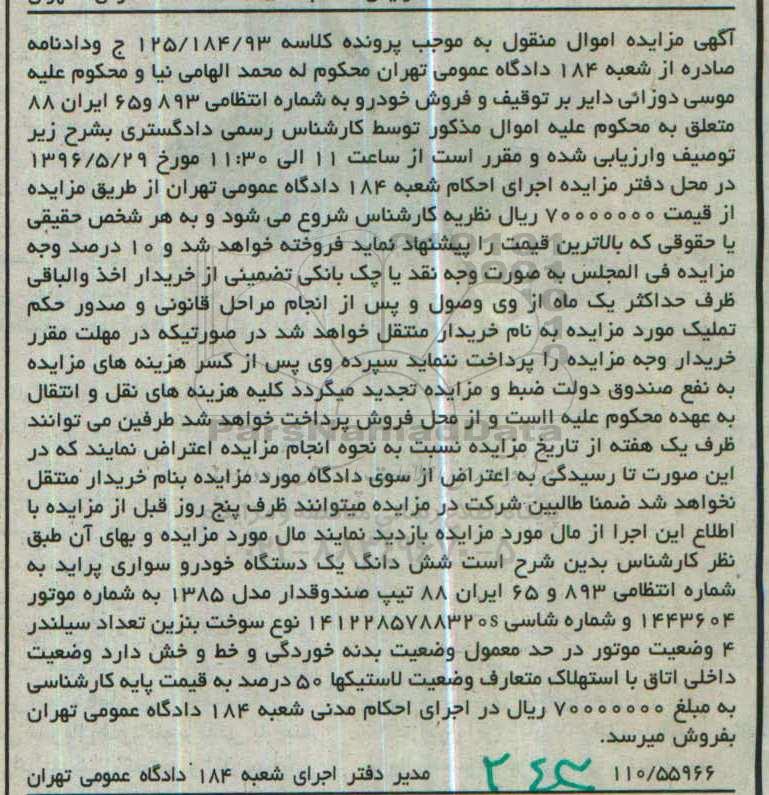 آگهی مزایده اموال منقول به موجب پرونده کلاسه ۱۲۵/۱۸۴/۹۳ ج ودادنامه
صادره از شعبه ۱۸۴ دادگاه عمومی تهران محکوم له محمد الهامی نیا و محکوم علیه
موسی دوزائی دایر بر توقیف و فروش خودرو به شماره انتظامی ۸۹۳ و۶۵ ایران ۸۸
متعلق به محکوم علیه اموال مذکور توسط کارشناس رسمی دادگستری بشرح زیر
توصیف وارزیابی شده و مقرر است از ساعت ۱۱ الی ۱۱:۳۰ مورخ ۱۳۹۶/۵/۲۹
در محل دفتر مزایده اجرای احکام شعبه ۱۸۴ دادگاه عمومی تهران از طریق مزایده
از قیمت ۷۰۰۰۰۰۰۰ ریال نظریه کارشناس شروع می شود و به هر شخص حقیقی
یا حقوقی که بالاترین قیمت را پیشنهاد نماید فروخته خواهد شد و ۱۰ درصد وجه
مزایده فی المجلس به صورت وجه نقد یا چک بانکی تضمینی از خریدار اخذ والباقی
ظرف حداکثر یک ماه از وی وصول و پس از انجام مراحل قانونی و صدور حکم
تملیک مورد مزایده به نام خریدار منتقل خواهد شد در صورتیکه در مهلت مقرر
خریدار وجه مزایده را پرداخت ننماید سپرده وی پس از کسر هزینه های مزایده
به نفع صندوق دولت ضبط و مزایده تجدید میگردد کلیه هزینه های نقل و انتقال
به عهده محکوم علیه ااست و از محل فروش پرداخت خواهد شد طرفین می توانند
ظرف یک هفته از تاریخ مزایده نسبت به نحوه انجام مزایده اعتراض نمایند که در
این صورت تا رسیدگی به اعتراض از سوی دادگاه مورد مزایده بنام خریدار منتقل
نخواهد شد ضمنا طالبین شرکت در مزایده میتوانند ظرف پنج روز قبل از مزایده با
اطلاع این اجرا از مال مورد مزایده بازدید نمایند مال مورد مزایده و بهای آن طبق
نظر کارشناس بدین شرح است شش دانگ یک دستگاه خودرو سواری پراید به
شماره انتظامی ۸۹۳ و ۶۵ ایران ۸۸ تیپ صندوقدار مدل ۱۳۸۵ به شماره موتور
۱۴۴۳۶۰۴ و شماره شاسی ۱۴۱۲۲۸۵۷۸۸۳۲۰s نوع سوخت بنزین تعداد سیلندر
۴ وضعیت موتور در حد معمول وضعیت بدنه خوردگی و خط و خش دارد وضعیت
داخلی اتاق با استهلاک متعارف وضعیت لاستیکها ۵۰ درصد به قیمت پایه کارشناسی
به مبلغ ۷۰۰۰۰۰۰۰ ریال در اجرای احکام مدنی شعبه ۱۸۴ دادگاه عمومی تهران
بفروش میرسد.
۱۱۰/۵۵۹۶۶ مدیر دفتر اجرای شعبه ۱۸۴ دادگاه عمومی تهران
ParsNamadData